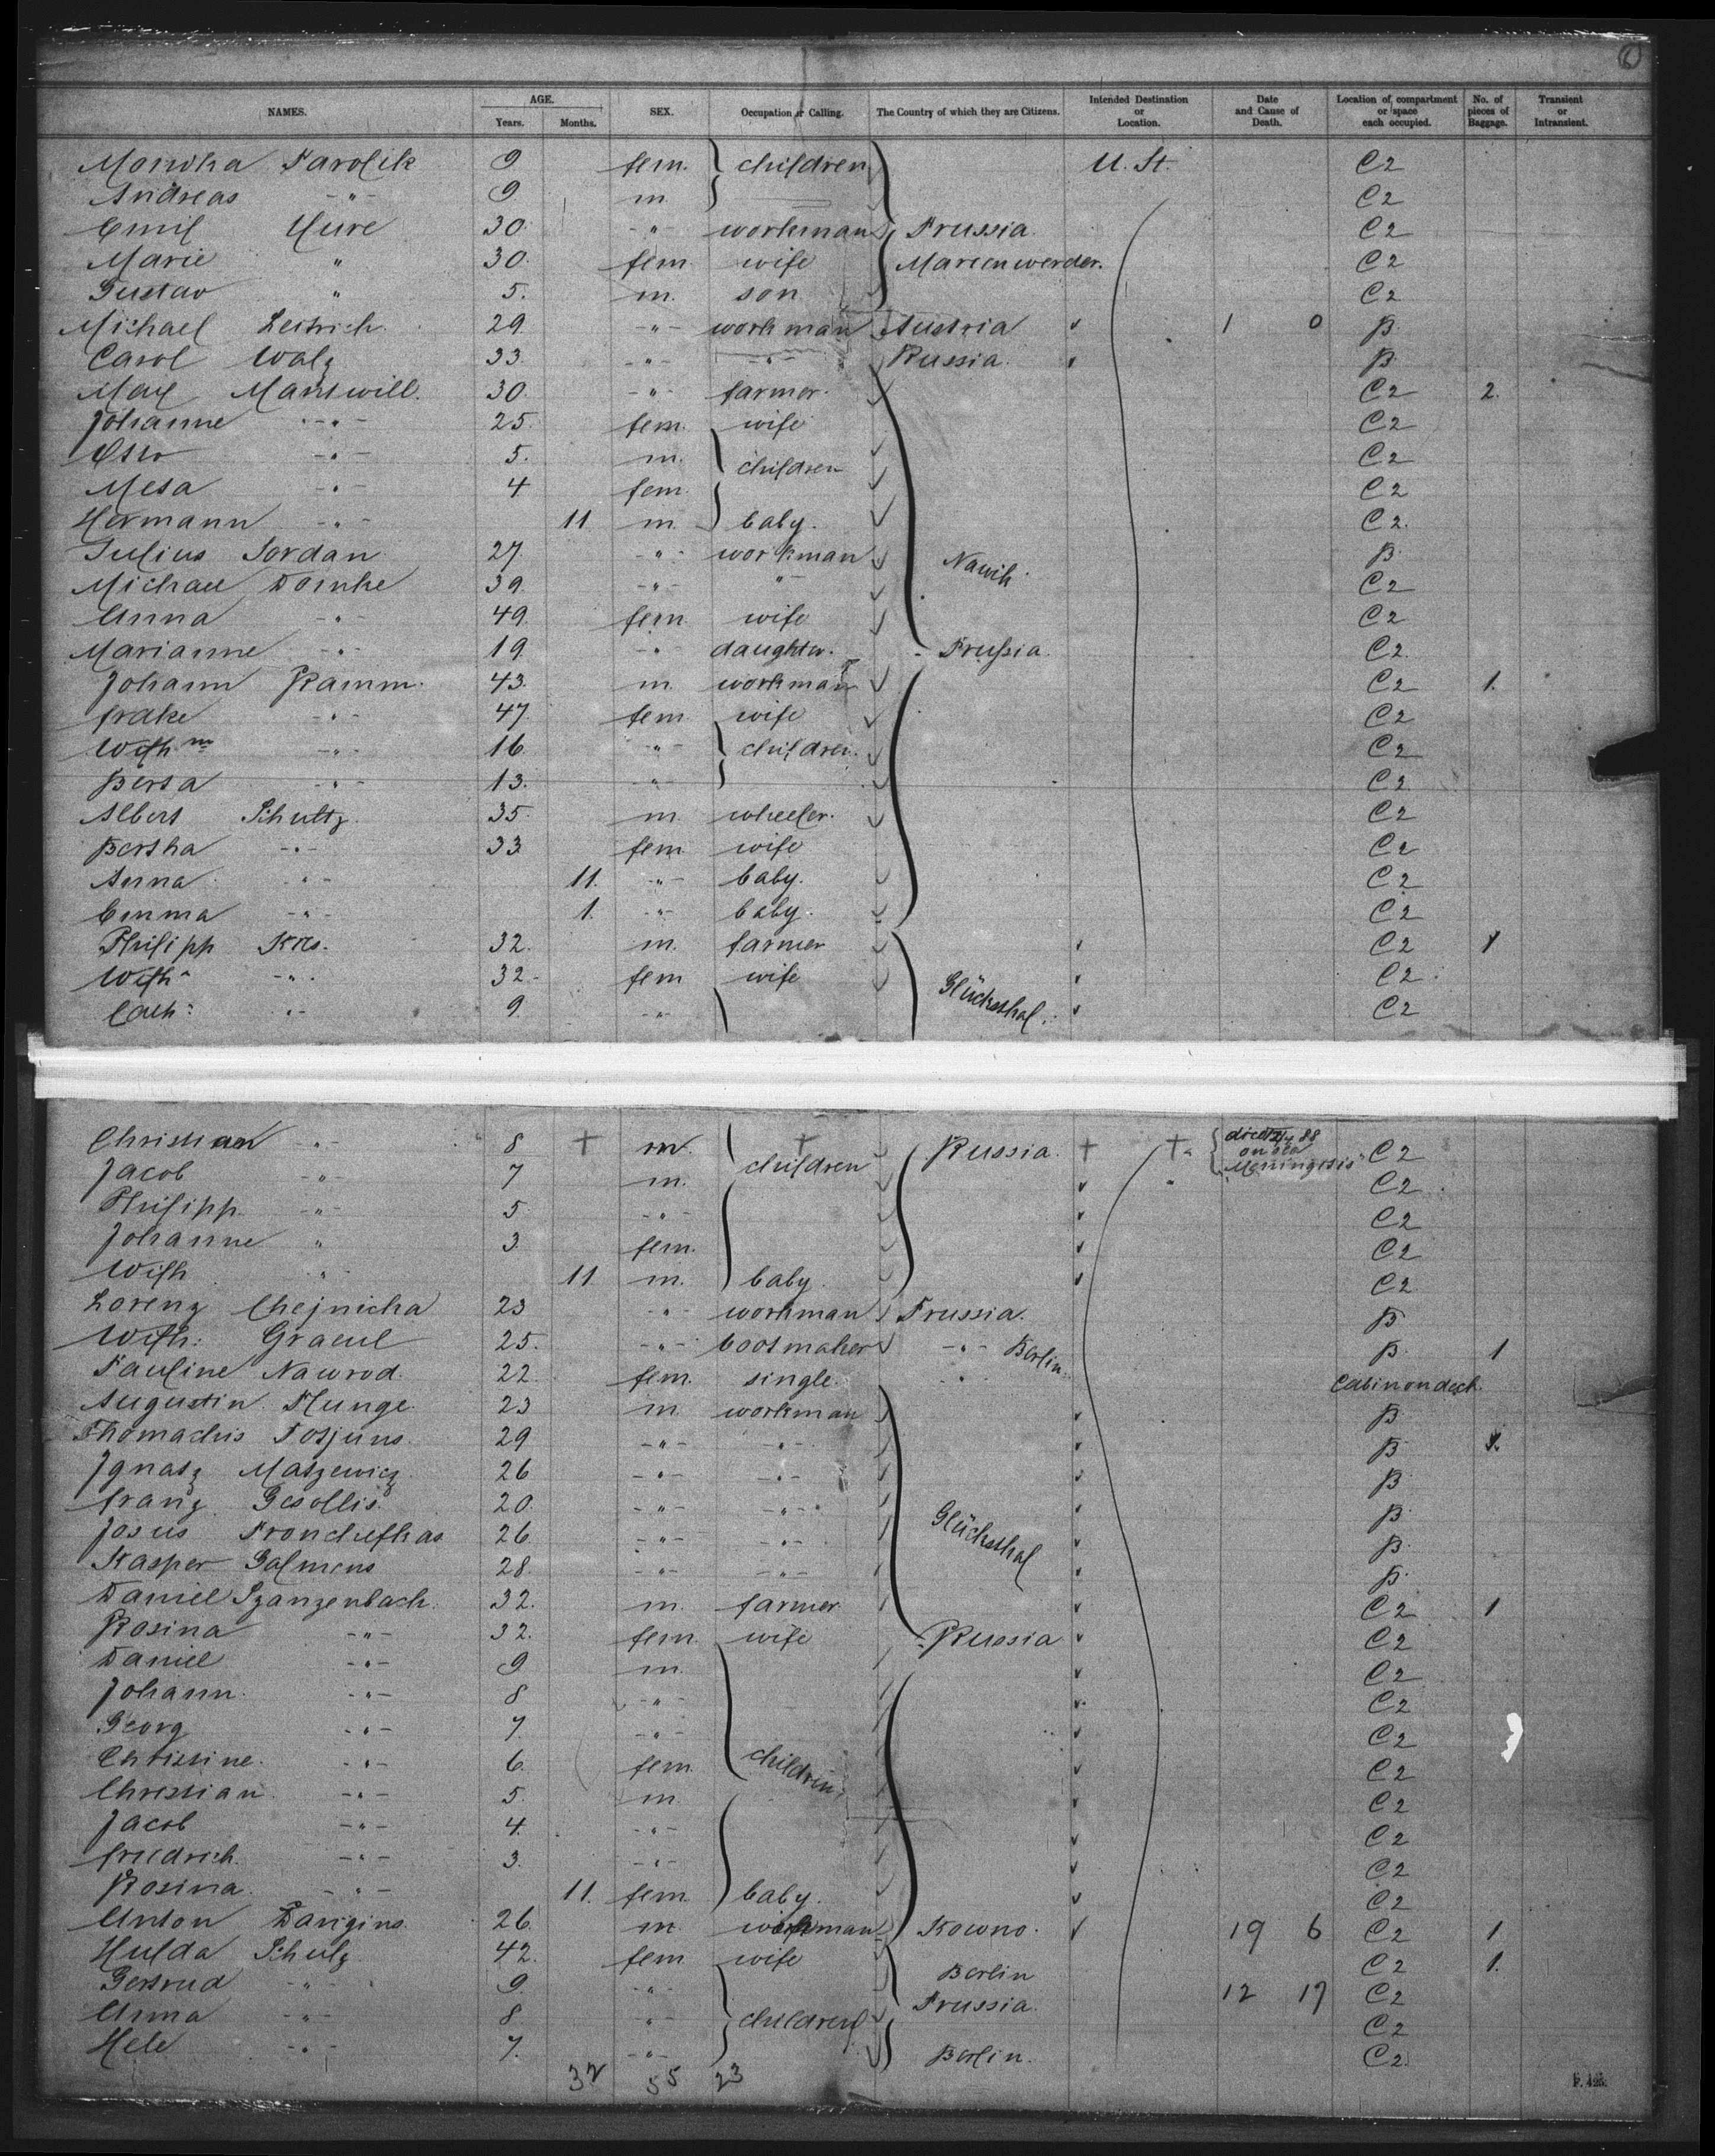 NAMES. AGE. Years. Months. SEX. Occupation or Calling. The Country of which they are Citizens. Intended Destination or Location. Date and Cause of Death. Location of compartment or space each occupied. No. of pieces of Baggage. Transient or Intransient.
9 fem. children U. St. C2
Andreas -"- 9 m C2
Emil 30 -"- workman Prussia C2
Marie " 30. fem wife Marienwerder. C2
Gustav " 5. m. son C2
Michael 29 -"- workman Austria 1 0 B
Carol Walz 33 -"- -"- Russia. B
Max Mantwill. 30. -"- farmer. C2 2.
Johanne -"- 25. fem. wife C2
Otto -"- 5. m. children C2
Mesa -"- 4 fem. C2
Hermann -"- 11. m. baby. C2.
Julius Jordan 27. -"- workman B
Michael Domke 39. -"- " C2
Anna -"- 49. fem. wife C2
Marianne -"- 19. -"- daughter. - Prussia. C2.
Johann Ramm. 43. m. workman C2 1.
-"- 47. fem wife C2
Wilh -"- 16. -"- children. C2
Berta -"- 13. -"- C2
Albert Schultz. 35. m. wheeler. C2
Bertha -"- 33 fem wife C2
Anna -"- 11. -"- baby. C2
Emma -"- 1. -"- baby. C2
Philipp 32. m. farmer C2 1
Wilh -"- 32. fem wife Glücksthal. C2
Cath: -"- 9. -"- C2
Christian -"- 8 + m. + children Russia. + + died 88 on sea Meningitis C2
Jacob -"- 7 m. C2
Philipp -"- 5 -"- C2
Johanne " 3 fem. C2
Wilh " 11 m. baby. C2
Lorenz Chejnicka 23 -"- workman Prussia. B
Wilh: Graeul 25. -"- bootmaker -"- Berlin B 1
Pauline Nawrod. 22. fem. single. Cabin on deck.
Augustin Plunge 23 m. workman B
29 -"- -"- B 1.
Ignatz Matzewicz. 26 -"- -"- B
Franz Gesollis. 20. -"- -"- B
26 -"- -"- Glücksthal B
Kasper Galmens 28. -"- -"- B
Daniel Szanzenbach. 32. m. farmer C2 1
Rosina -"- 32. fem. wife Russia C2
Daniel -"- 9 m. C2
Johann. -"- 8 -"- C2
Georg -"- 7. -"- C2
Christine. -"- 6. fem. children C2
Christian -"- 5. m. C2
Jacob -"- 4. -"- C2
Friedrich. -"- 3. -"- C2
Rosina. -"- 11. fem. baby. C2
Anton 26. m. workman Kowno. 19 6 C2 1
Hulda Schulz 42. fem. wife C2 1.
Gertrud -"- 9. -"- Berlin Prussia. 12 17 C2
Anna -"- 8 -"- children C2
Hele -"- 7. -"- Berlin. C2.
32 55 23